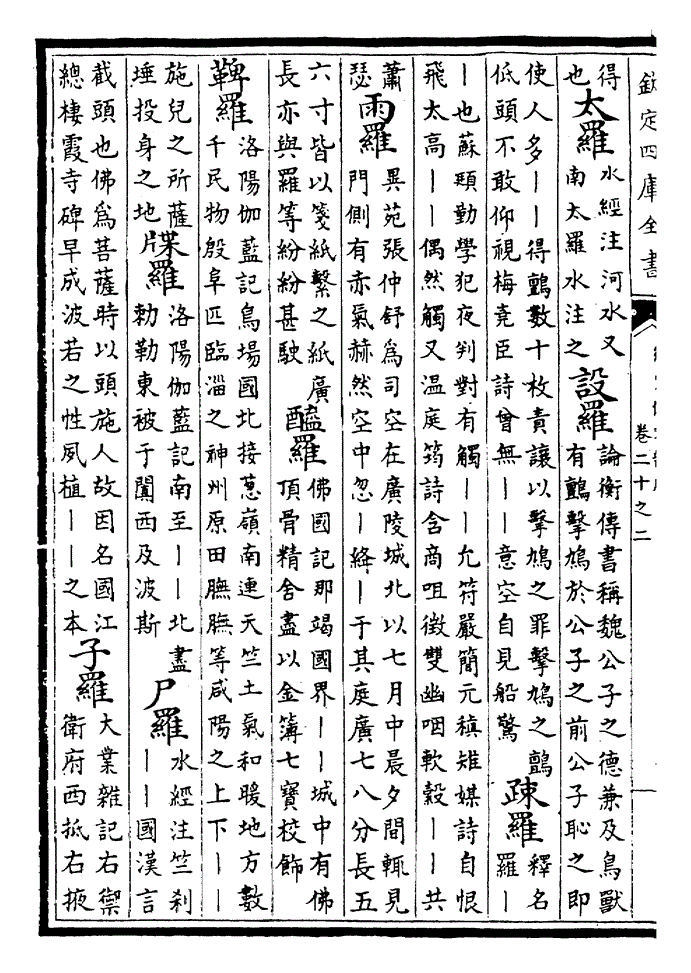 欽定四庫全書
卷二十之二
得
也
太羅
水經注河水又
南太羅水注之
設羅
論衡傳書稱魏公子之德兼及鳥獸
有鸇擊鳩於公子之前公子恥之即
使人多——得鸇數十枚責讓以擊鳩之罪擊鳩之鸇
低頭不敢仰視梅堯臣詩曾無——意空自見船驚
疎羅
釋名
羅—
—也蘇頲勤學犯夜判對有觸——允符嚴簡元稹雉媒詩自恨
飛太高——偶然觸又温庭筠詩含商咀徵雙幽咽軟縠——共
蕭
瑟
雨羅
異苑張仲舒為司空在廣陵城北以七月中晨夕間輒見
門側有赤氣赫然空中忽—絳—于其庭廣七八分長五
六寸皆以箋紙繫之紙廣
長亦與羅等紛紛甚駛
醯羅
佛國記那竭國界——城中有佛
頂骨精舍盡以金簿七寶校飾
鞞羅
洛陽伽藍記烏場國北接蔥嶺南連天竺土氣和暖地方數
千民物殷阜匹臨淄之神州原田膴膴等咸陽之上下——
施兒之所薩
埵投身之地
牒羅
洛陽伽藍記南至——北盡
勅勒東被于闐西及波斯
尸羅
水經注竺刹
——國漢言
截頭也佛為菩薩時以頭施人故因名國江
總棲霞寺碑早成波若之性夙植——之本
子羅
大業雜記右禦
衛府西抵右掖